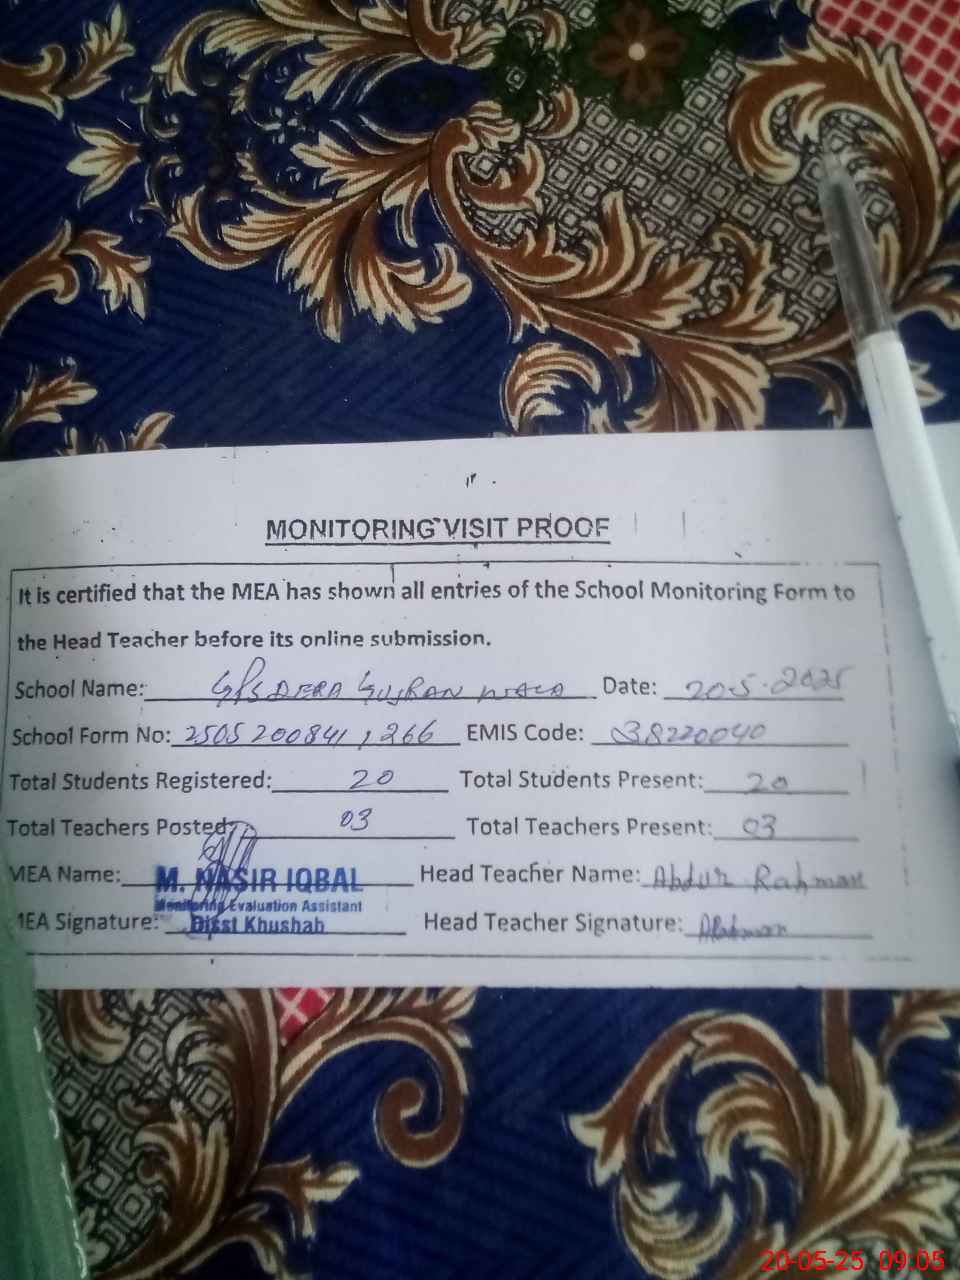 MONITORING VISIT PROOF
It is certified that the MEA has shown all entries of the School Monitoring Form to
the Head Teacher before its online submission.
School Name: GPS DERA GUJRAN WALA Date: 20.5.2025
School Form No: 2505200841,266 EMIS Code: 38220040
Total Students Registered: 20 Total Students Present: 20
Total Teachers Posted: 03 Total Teachers Present: 03
MEA Name: M. NASIR IQBAL Head Teacher Name: Abdur Rahman
Monitoring Evaluation Assistant
MEA Signature: Disst Khushab Head Teacher Signature: ARahman
20-05-25 09:05